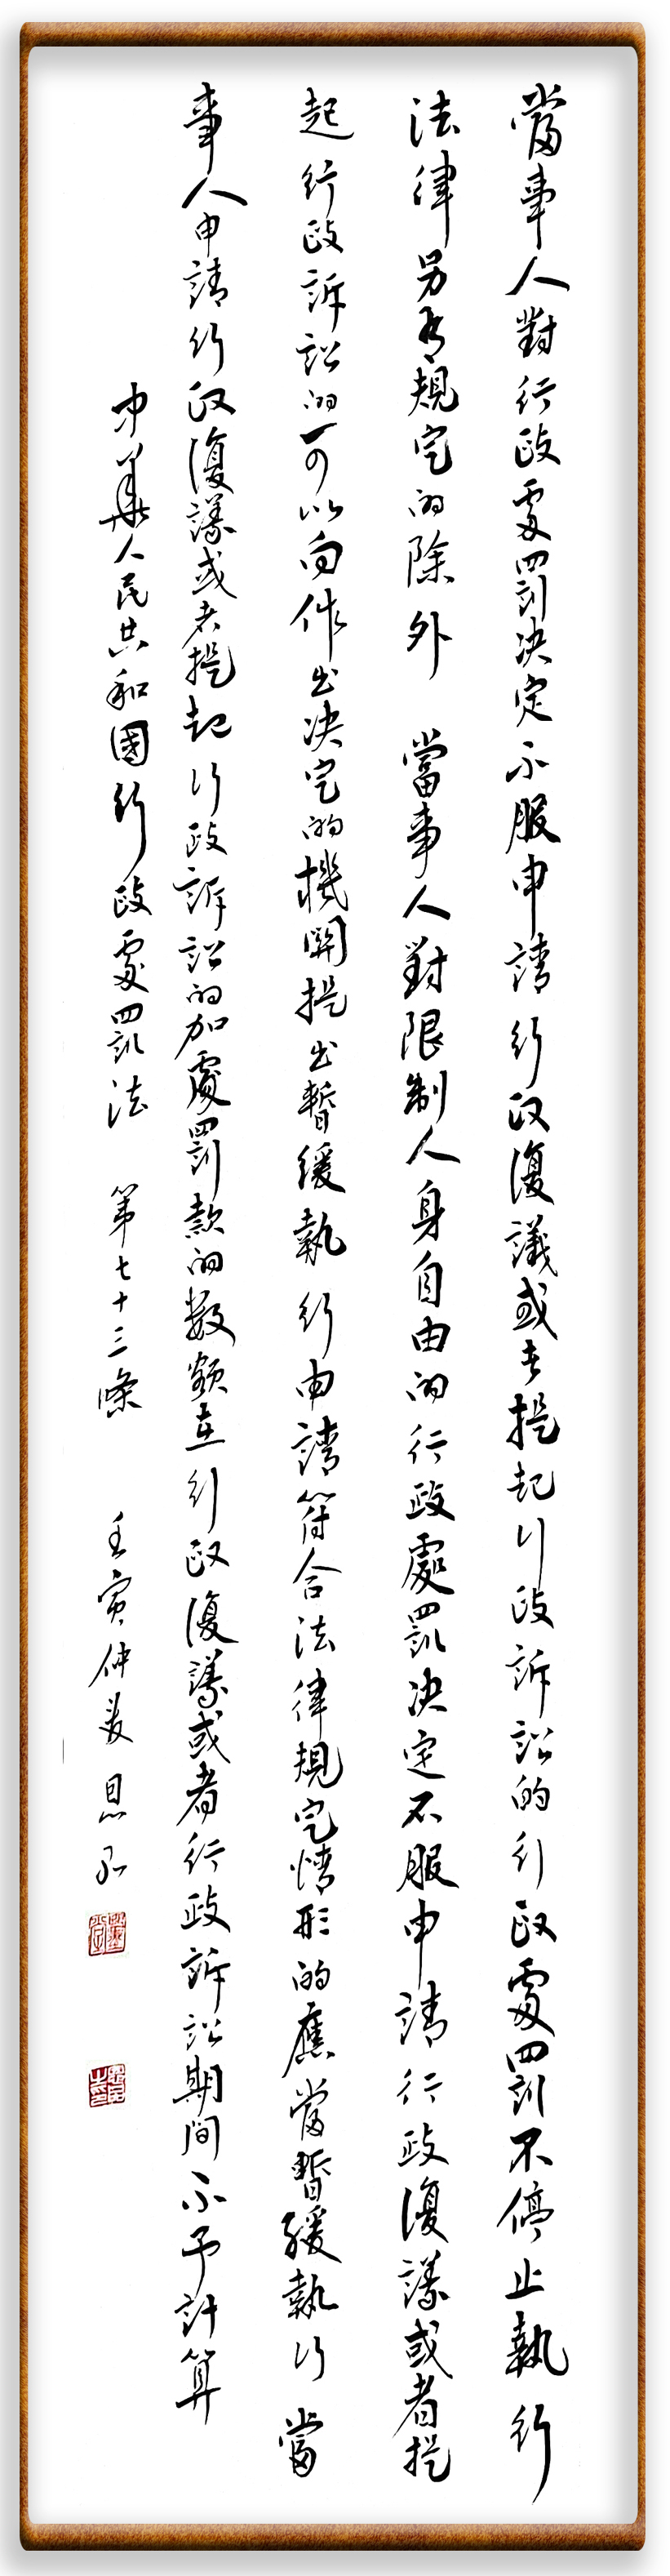 當事人對行政處罰決定不服申請行政復議或者提起行政訴訟的行政處罰不停止執行
法律另有規定的除外 當事人對限制人身自由的行政處罰決定不服申請行政復議或者提
起行政訴訟的可以向作出決定的機關提出暫緩執行申請符合法律規定情形的應當暫緩執行 當
事人申請行政復議或者提起行政訴訟的加處罰款的數額在行政復議或者行政訴訟期間不予計算
中華人民共和國行政處罰法 第七十三條 壬寅仲夏